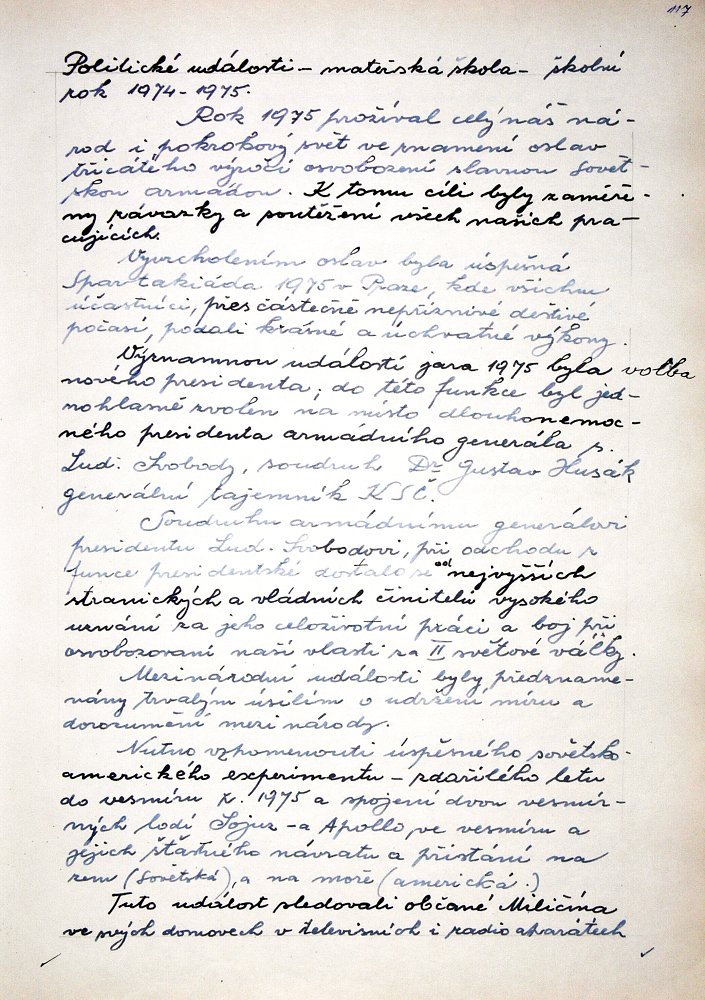 117
Politické události – mateřská škola – školní
rok 1974 - 1975.
Rok 1975 prožíval celý náš ná-
rod i pokrokový svět ve znamení oslav
třicátého výročí osvobození slavnou Sovět-
skou armádou. K tomu cíli byly zaměře-
ny závazky a soutěžení všech našich pra-
cujících.
Vyvrcholením oslav byla úspěšná
Spartakiáda 1975 v Praze, kde všichni
účastníci, přes částečně nepříznivé deštivé
počasí, podali krásné a úchvatné výkony.
Významnou událostí jara 1975 byla volba
nového presidenta; do této funkce byl jed-
nohlasně zvolen na místo dlouhonemoc-
ného presidenta armádního generála s.
Lud. Svobody, soudruh Dr Gustav Husák
generální tajemník KSČ.
Soudruhu armádnímu generálovi
presidentu Lud. Svobodovi, při odchodu z
funce presidentské dostalo se od nejvyšších
stranických a vládních činitelů vysokého
uznání za jeho celoživotní práci a boj při
osvobozovaní naší vlasti za II světové války.
Mezinárodní události byly předzname-
nány trvalým úsilím o udržení míru a
dorozumění mezi národy.
Nutno vzpomenouti úspěsného sovětsko-
amerického experimentu – zdařilého letu
do vesmíru r. 1975 a spojení dvou vesmír-
ných lodí Sojuz - a Apollo, ve vesmíru a
jejich šťastného návratu a přistání na
zem (sovětská), a na moře (americká.)
Tuto událost sledovali občané Miličína
ve svých domovech v televisních i radioaparátech